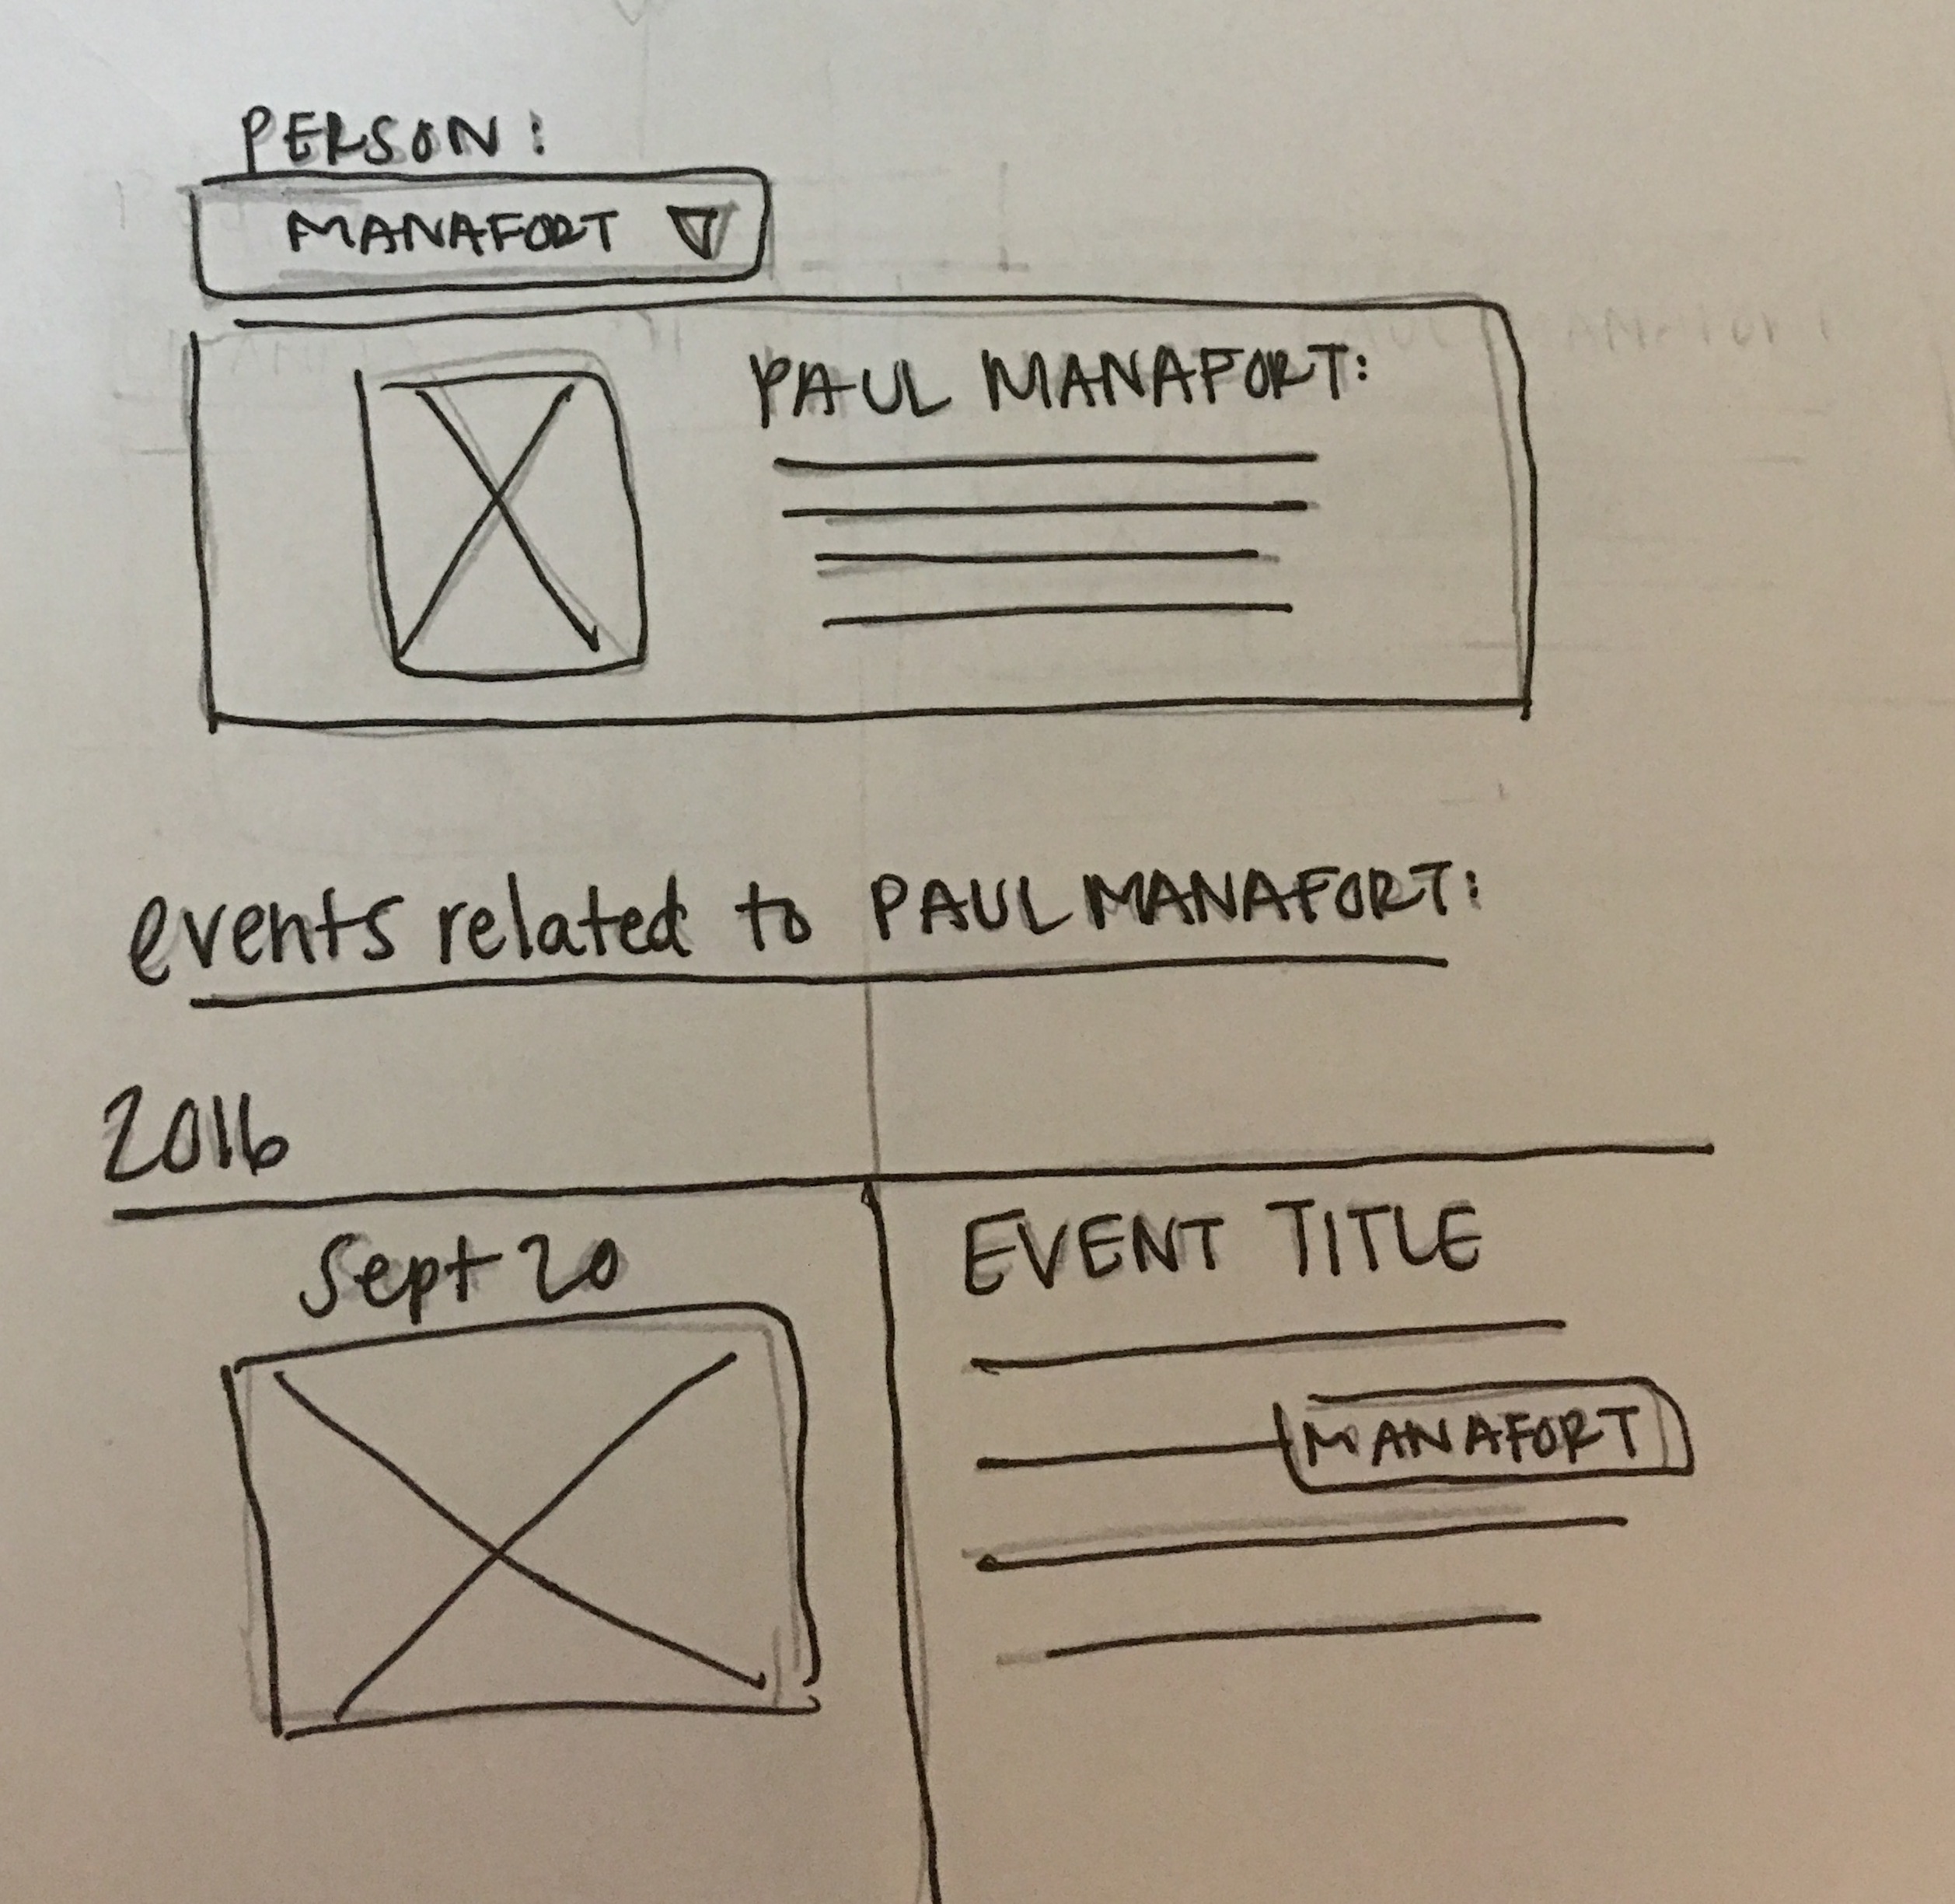 PERSON:
MANAFORT
PAUL MANAFORT:
events related to PAUL MANAFORT:
2016
Sept 20
EVENT TITLE
MANAFORT